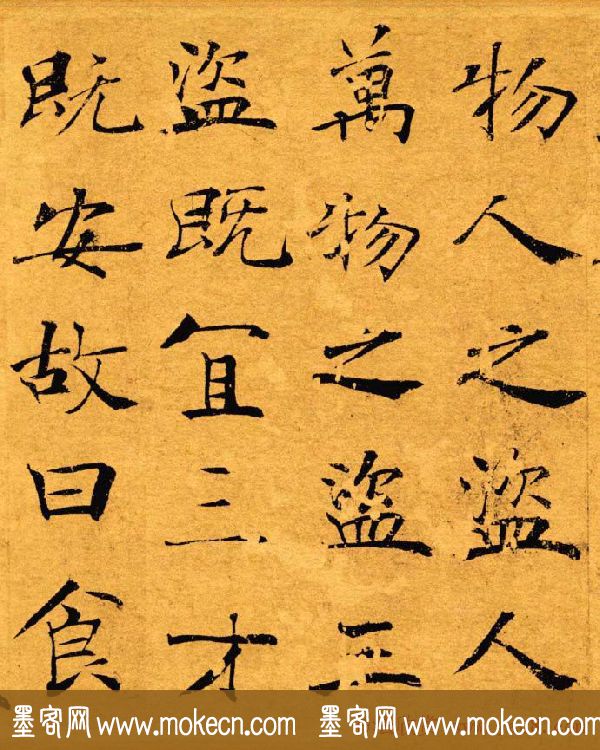 物人之盜人
萬物之盜三
盜既宜三才
既安故曰食
墨客网 www.mokecn.com 墨客网 www.mokecn.com